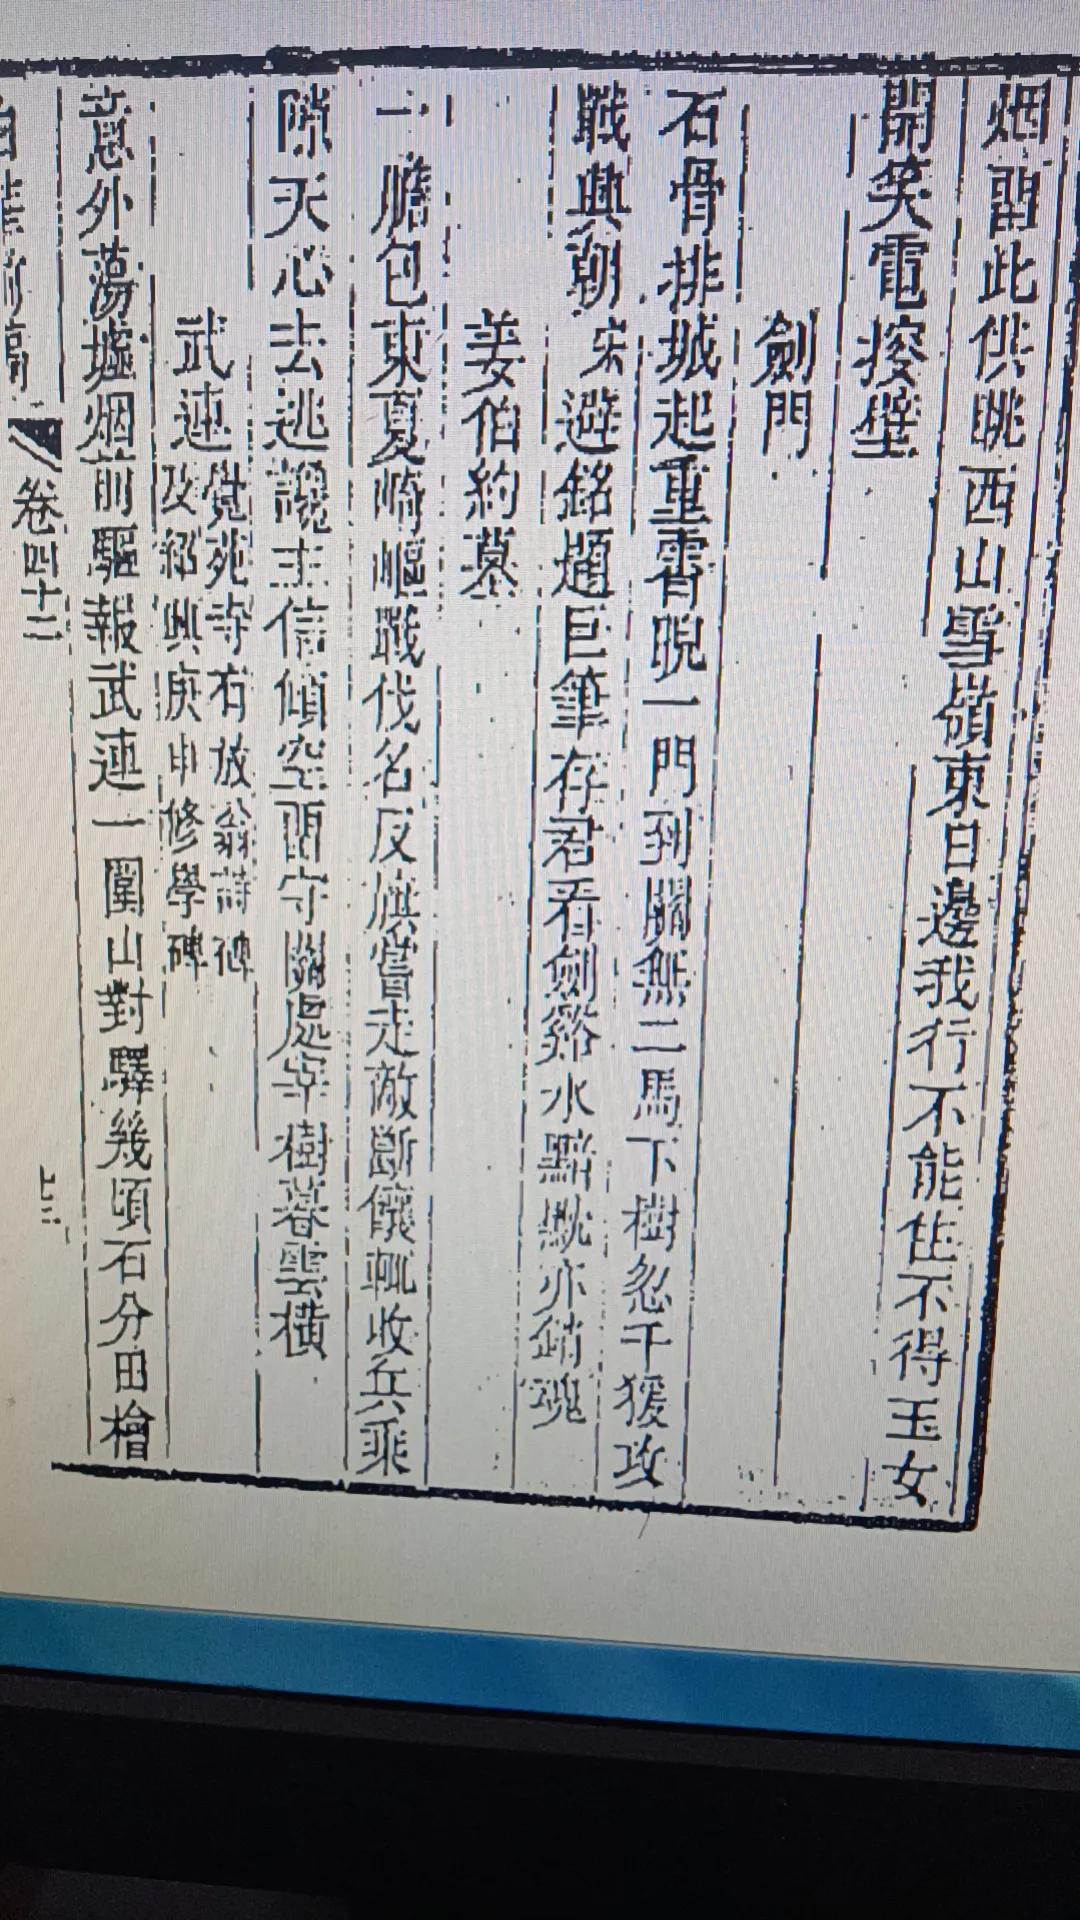 烟留此供眺西山雪嶺東日邊我行不能住不得玉女
開笑電投壁
劍門
石骨排城起重霄睨一門到關無二馬下樹忽千猨攻
戰興朝宋避銘題巨筆存君看劍谿水黯黮亦銷魂
姜伯約墓
一膽包東夏崎嶇戰伐名反旗嘗走敵斷餽輒收兵乘
隙天心去逃讒主信傾空聞守關處宰樹暮雲橫
武連覺苑寺有放翁詩碑
及紹興庚申修學碑
意外蕩墟烟前驅報武連一圍山對驛幾頃石分田檜
卷四十二
十三